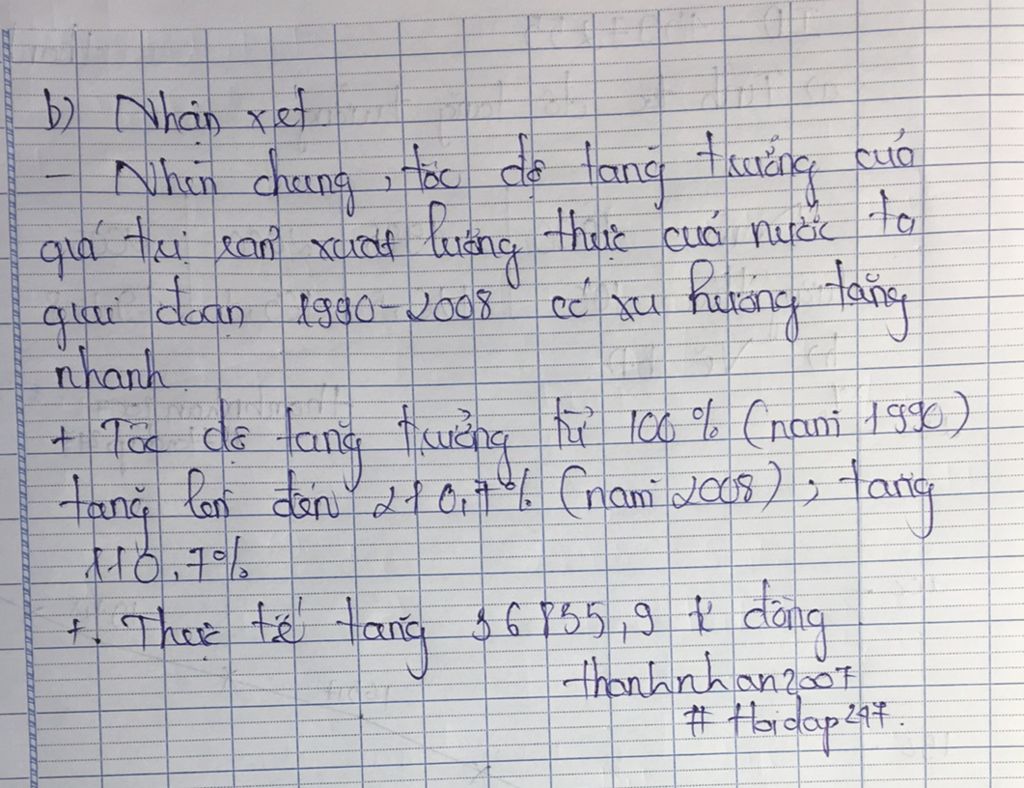 b) Nhận xét
- Nhìn chung, tốc độ tăng trưởng của
giá trị sản xuất lương thực của nước ta
giai đoạn 1990-2008 có xu hướng tăng
nhanh.
+ Tốc độ tăng trưởng từ 100% (năm 1990)
tăng lên đến 210,7% (năm 2008), tăng
110,7%
+. Thực tế tăng 36755,9 tỉ đồng
thanhnhan2007
# Hoidap247.